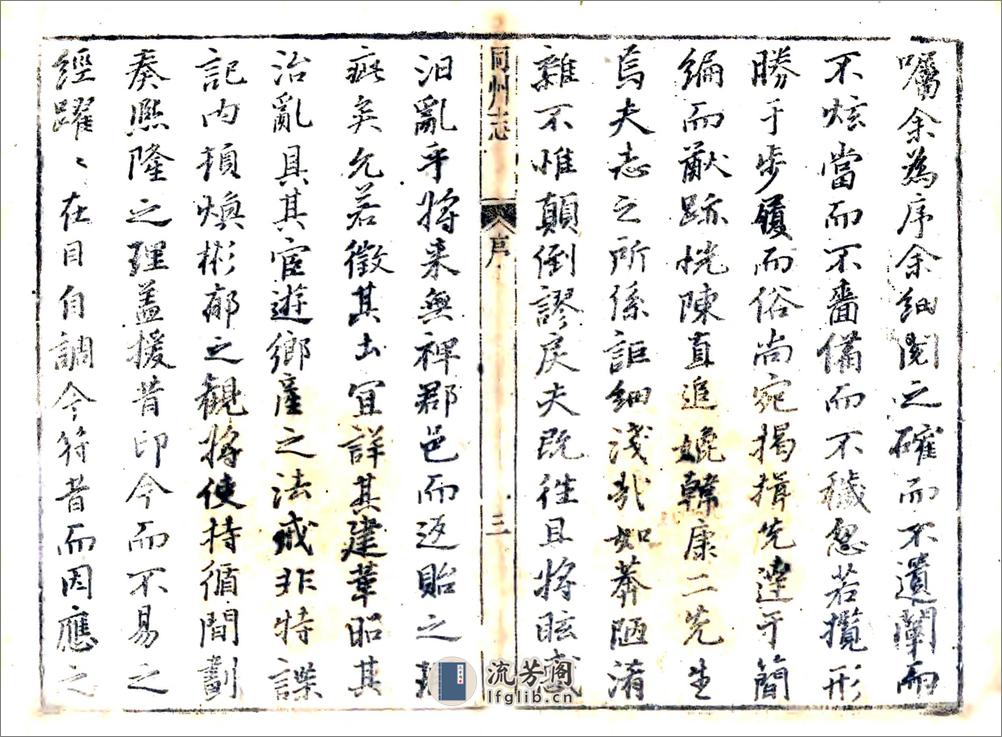 囑余為序余細閱之確而不遺闡而
不炫當而不嗇備而不穢忽若攬形
勝于步履而俗尚宛揭揖先達于簡
編而猷跡恍陳直追媲韓康二先生
焉夫志之所係詎細淺哉如莽陋淆
雜不惟顛倒謬戾夫既往且將眩惑
同州志
序
三
汩亂乎將来無裨郡邑而返貽之
疵矣允若徵其土宜詳其建革昭其
治亂具其宦遊鄉產之法戒非特諜
記内頓煥彬郁之觀將使持循間劃
奏熙隆之理盖援昔印今而不易之
經躍〻在目自調今符昔而因應之
流芳阁
lfglib.cn